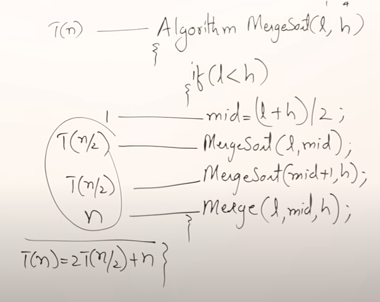 T(n) — Algorithm MergeSort(l, h)
{
if(l<h)
{
1 — mid=(l+h)/2;
T(n/2) — MergeSort(l,mid);
T(n/2) — MergeSort(mid+1,h);
n — Merge(l,mid,h);
}
T(n)=2T(n/2)+n }